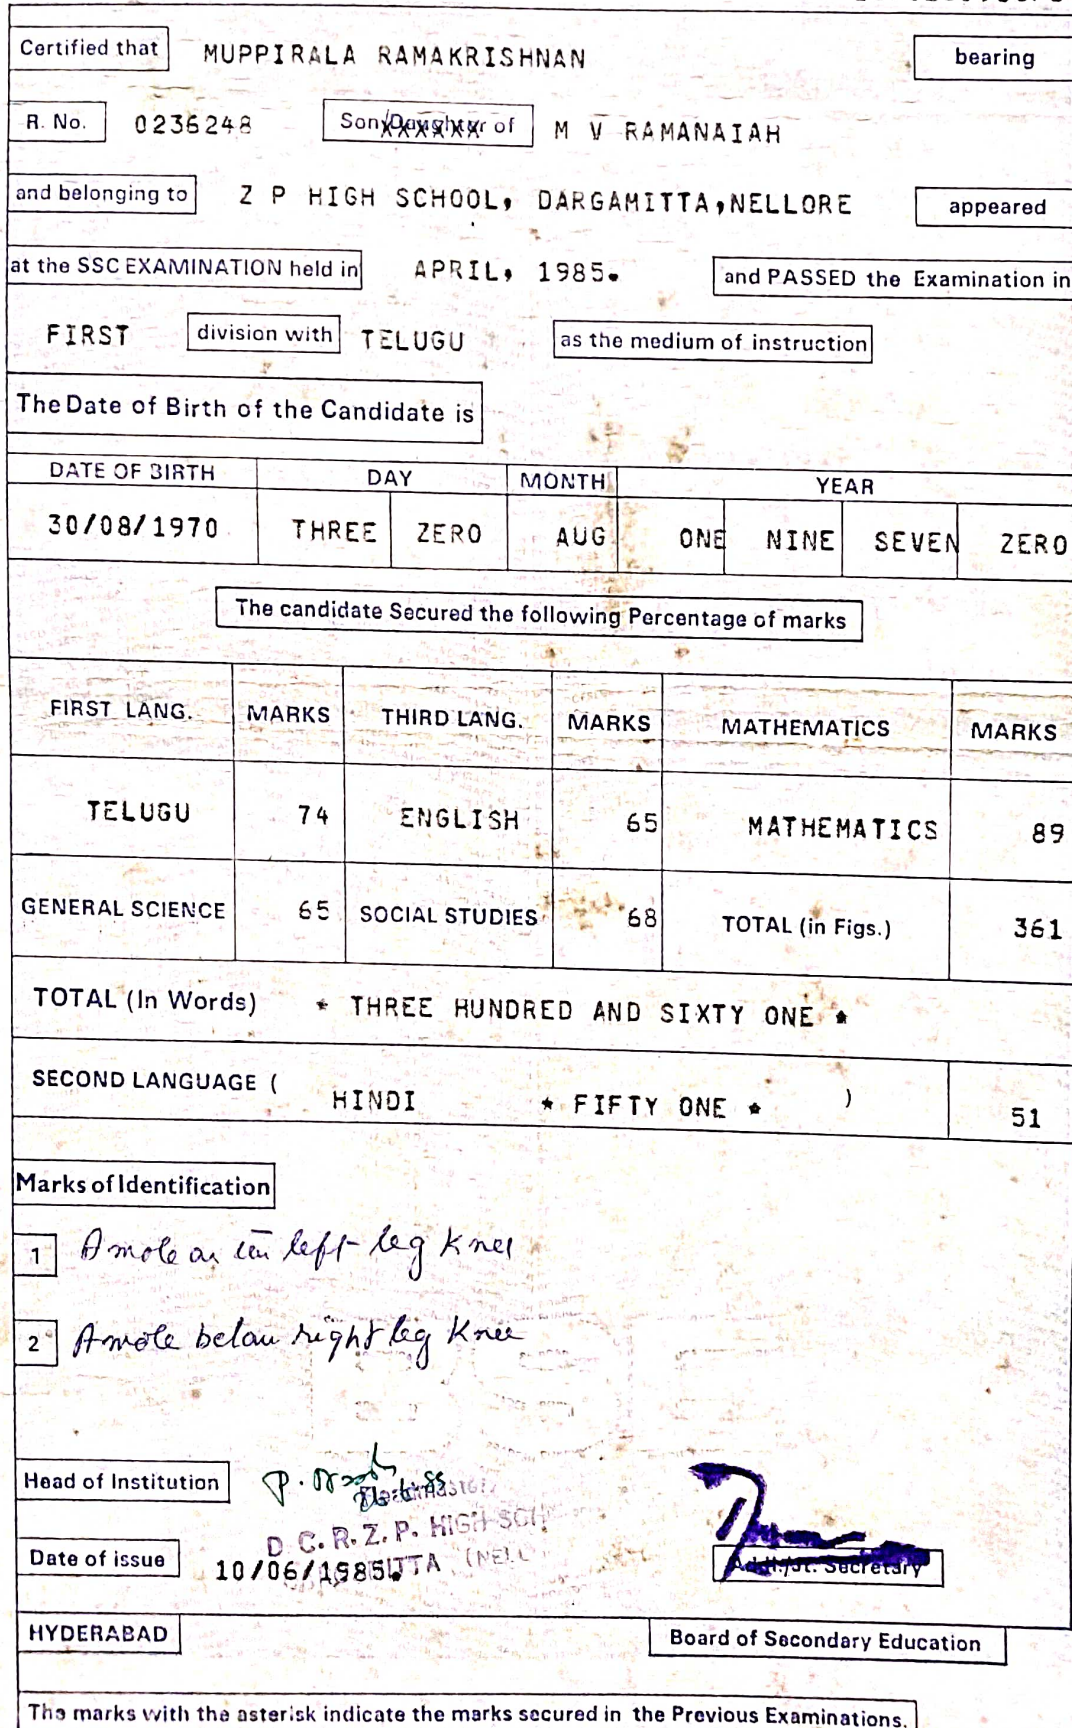 Certified that MUPPIRALA RAMAKRISHNAN bearing
R. No. 0236248 Son/Daughter of M V RAMANAIAH
and belonging to Z P HIGH SCHOOL, DARGAMITTA,NELLORE appeared
at the SSC EXAMINATION held in APRIL, 1985. and PASSED the Examination in
FIRST division with TELUGU as the medium of instruction
The Date of Birth of the Candidate is
DATE OF BIRTH DAY MONTH YEAR
30/08/1970 THREE ZERO AUG ONE NINE SEVEN ZERO
The candidate Secured the following Percentage of marks
FIRST LANG. MARKS THIRD LANG. MARKS MATHEMATICS MARKS
TELUGU 74 ENGLISH 65 MATHEMATICS 89
GENERAL SCIENCE 65 SOCIAL STUDIES 68 TOTAL (in Figs.) 361
TOTAL (In Words) * THREE HUNDRED AND SIXTY ONE *
SECOND LANGUAGE ( HINDI * FIFTY ONE * ) 51
Marks of Identification
1 A mole on left leg Knee
2 A mole below right leg Knee
Head of Institution
D.C.R.Z.P. HIGH SCH
Date of issue 10/06/1985. Addl./Jt. Secretary
HYDERABAD Board of Secondary Education
The marks with the asterisk indicate the marks secured in the Previous Examinations.